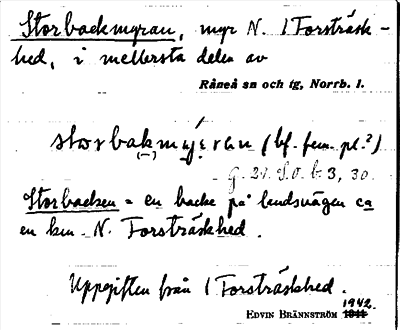 Storbackmyran, myr N. i Forsträsk-
hed, i mellersta delen av
Råneå sn och tg, Norrb. l.
storbakmýran (bf. fem. pl.?)
(–)
g. 21. S.O. b. 3, 30.
Storbacken = en backe på landsvägen ca
en km. N. Forsträskhed.
Uppgiften från i Forsträskhed.
1942.
EDVIN BRÄNNSTRÖM 1941